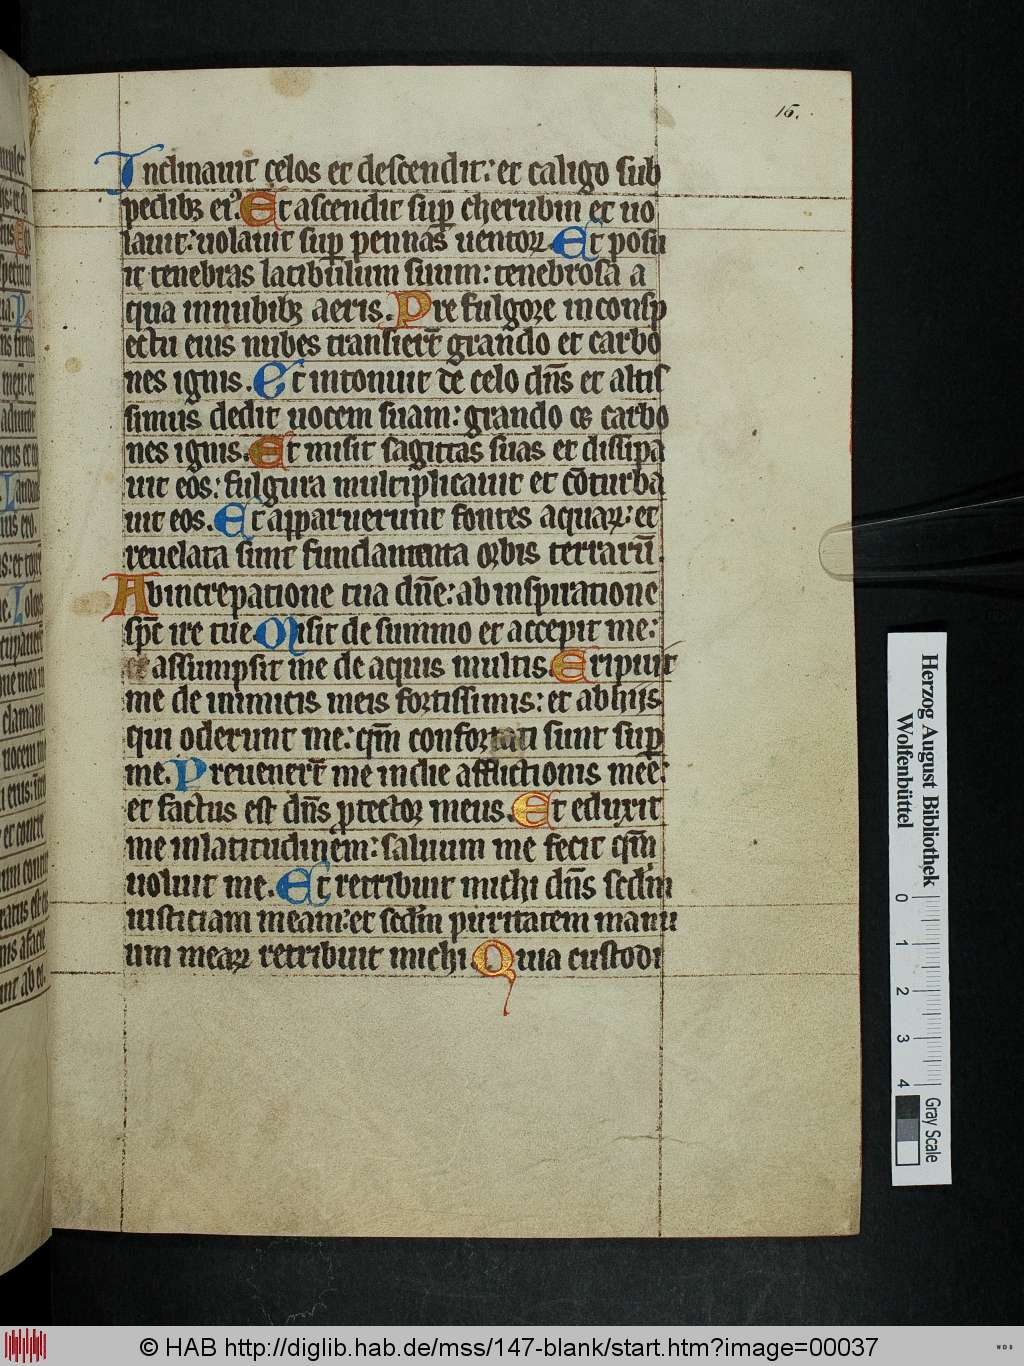 16.
Inclinauit celos et descendit: et caligo sub
pedibꝫ eiꝰ. Et ascendit suꝑ cherubin et uo
lauit: uolauit suꝑ pennas uentoꝝ. Et posu
it tenebras latibulum suum: tenebrosa a
qua in nubibꝫ aeris. Pre fulgore in consp
ectu eius nubes transierūt grando et carbo
nes ignis. Et intonuit de celo dn̄s et altis
simus dedit uocem suam: grando et carbo
nes ignis. Et misit sagittas suas et dissipa
uit eos: fulgura multiplicauit et cōturba
uit eos. Et apparuerunt fontes aquaꝝ: et
reuelata sunt fundamenta orbis terrarū.
Ab increpatione tua dn̄e: ab inspiratione
sp̄c ire tue. Misit de summo et accepit me:
et assumpsit me de aquis multis. Eripuit
me de inimicis meis fortissimis: et ab hijs
qui oderunt me: qm̄ confortati sunt suꝑ
me. Preuenerūt me in die afflictionis mee:
et factus est dn̄s ꝓtector meus. Et eduxit
me in latitudinem: saluum me fecit qm̄
uoluit me. Et retribuit michi dn̄s scd̄m
iusticiam meam: et scd̄m puritatem manu
um meaꝝ retribuit michi. Quia custodi
Herzog August Bibliothek
Wolfenbüttel
0 1 2 3 4
Gray Scale
© HAB http://diglib.hab.de/mss/147-blank/start.htm?image=00037